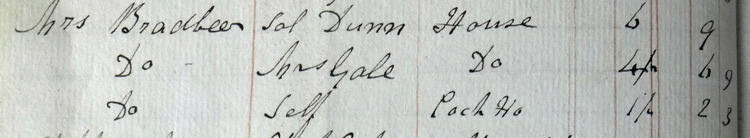 Mrs Bradbeer Sol Dunn House 6 9
Do - Mrs Gale Do 4½ 6 9
Do Self Poch Ho 1½ 2 3